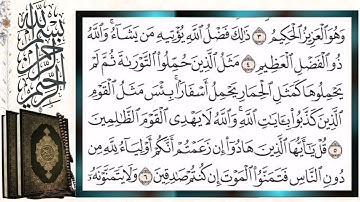 وَهُوَ ٱلْعَزِيزُ ٱلْحَكِيمُ ٣ ذَٰلِكَ فَضْلُ ٱللَّهِ يُؤْتِيهِ مَن يَشَآءُ ۚ وَٱللَّهُ
ذُو ٱلْفَضْلِ ٱلْعَظِيمِ ٤ مَثَلُ ٱلَّذِينَ حُمِّلُوا۟ ٱلتَّوْرَىٰةَ ثُمَّ لَمْ
يَحْمِلُوهَا كَمَثَلِ ٱلْحِمَارِ يَحْمِلُ أَسْفَارًۢا ۚ بِئْسَ مَثَلُ ٱلْقَوْمِ
ٱلَّذِينَ كَذَّبُوا۟ بِـَٔايَـٰتِ ٱللَّهِ ۚ وَٱللَّهُ لَا يَهْدِى ٱلْقَوْمَ ٱلظَّـٰلِمِينَ
٥ قُلْ يَـٰٓأَيُّهَا ٱلَّذِينَ هَادُوٓا۟ إِن زَعَمْتُمْ أَنَّكُمْ أَوْلِيَآءُ لِلَّهِ مِن
دُونِ ٱلنَّاسِ فَتَمَنَّوُا۟ ٱلْمَوْتَ إِن كُنتُمْ صَـٰدِقِينَ ٦ وَلَا يَتَمَنَّوْنَهُۥٓ
بسم الله الرحمن الرحيم